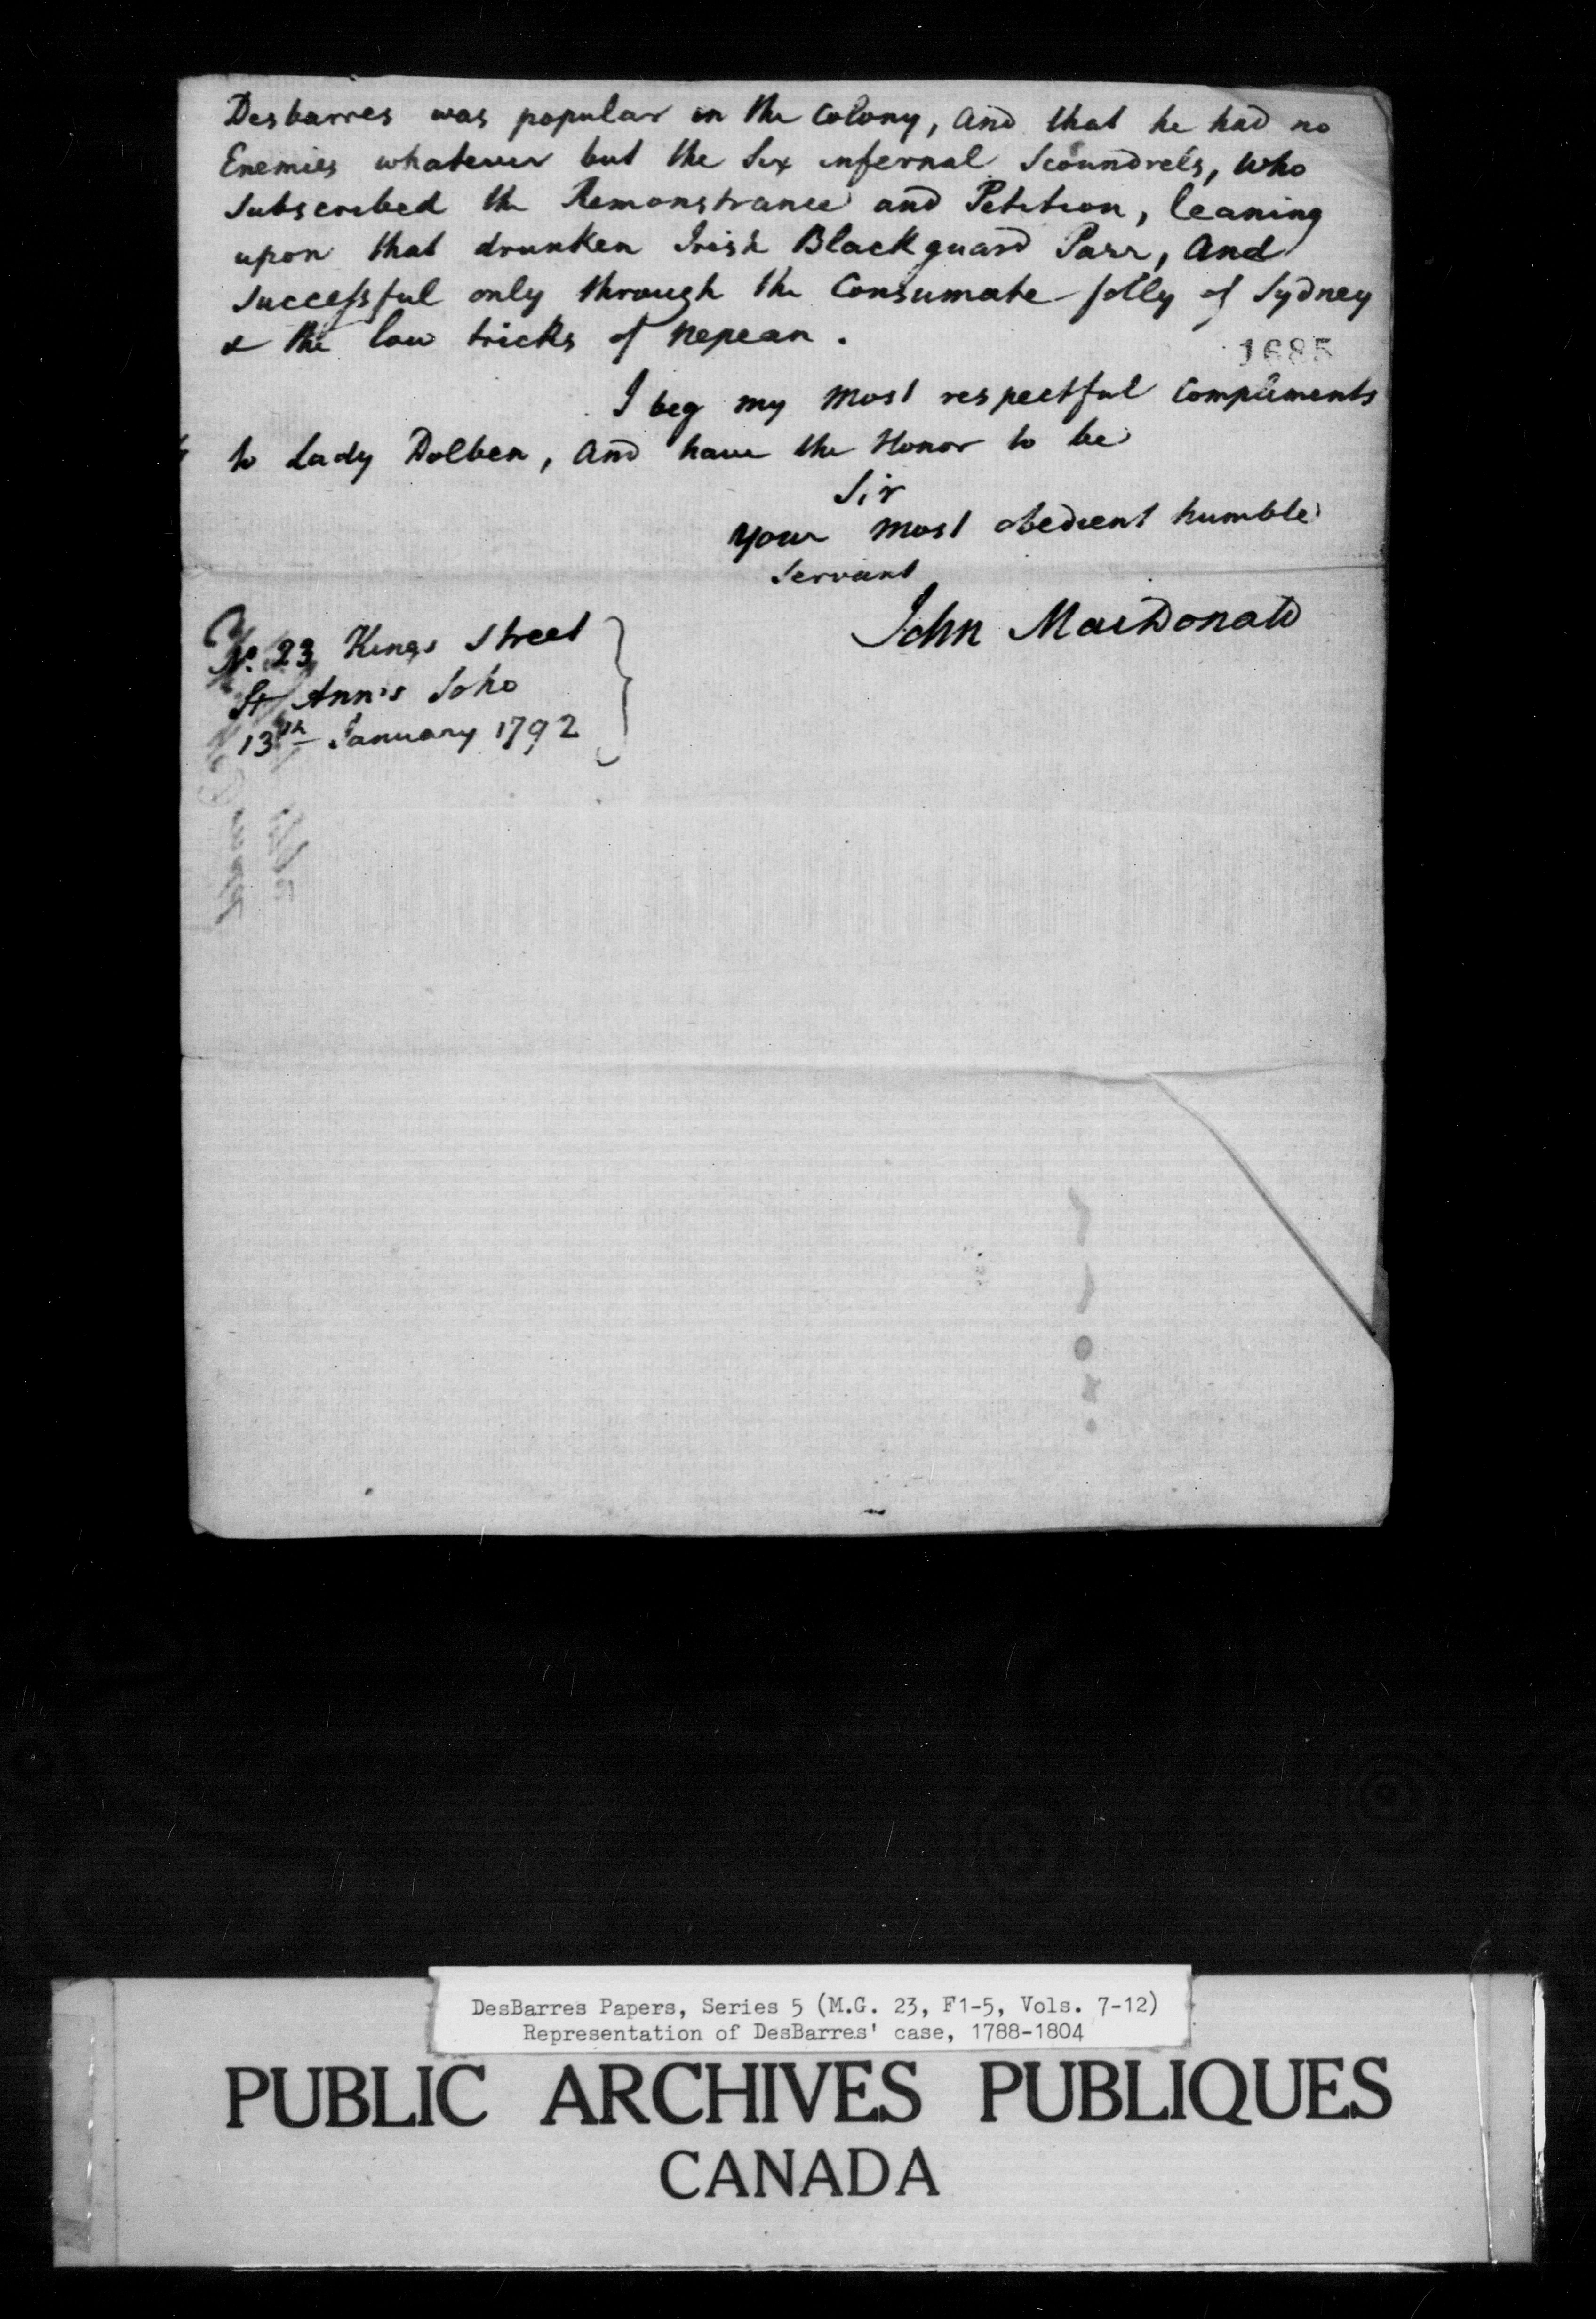 Desbarres was popular in the Colony, and that he had no
Enemies whatever but the Six infernal Scoundrels, who
subscribed the Remonstrance and Petition, leaning
upon that drunken Irish Blackguard Parr, and
successful only through the Consumate folly of Sydney
& the low tricks of Nepean.
1685
I beg my most respectful Compliments
to Lady Dolben, and have the Honor to be
Sir
your most obedient humble
servant
John MacDonald
No. 23 Kings Street
St Ann's Soho
13th January 1792
DesBarres Papers, Series 5 (M.G. 23, F1-5, Vols. 7-12)
Representation of DesBarres' case, 1788-1804
PUBLIC ARCHIVES PUBLIQUES
CANADA